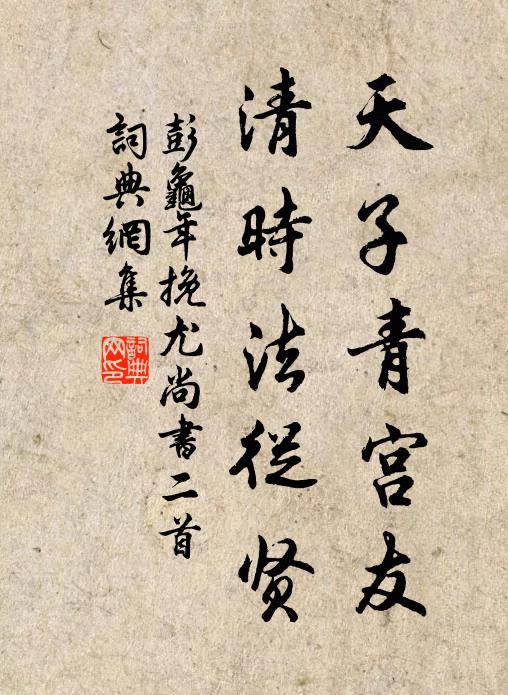 天子青宫友
清時法從贤
彭龜年挽尤尚書二首
詞典網集
詞典網印